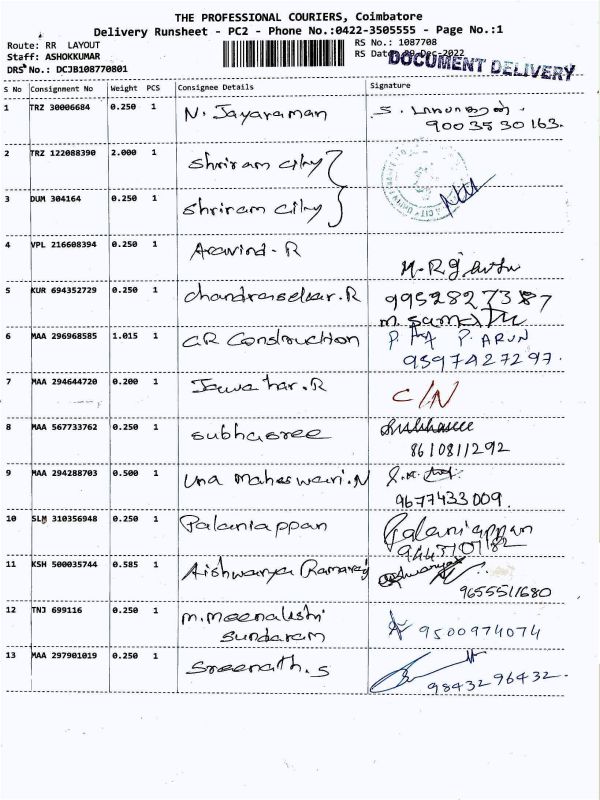 THE PROFESSIONAL COURIERS, Coimbatore
Delivery Runsheet - PC2 - Phone No.:0422-3505555 - Page No.:1
Route: RR LAYOUT
RS No.: 1087708
Staff: ASHOKKUMAR
RS Date: 29-Dec-2022
DOCUMENT DELIVERY
DRS No.: DCJB108770801
S No Consignment No Weight PCS Consignee Details Signature
1 TRZ 30006684 0.250 1 N. Jayaraman
9003530163.
2 TRZ 122088390 2.000 1 Shriram City
3 DUM 304164 0.250 1 Shriram City
4 VPL 216608394 0.250 1 Aravind-R
5 KUR 694352729 0.250 1 chandrasekar.R 9952827387
6 MAA 296968585 1.015 1 GR Construction P. ARUN
9597427297.
7 MAA 294644720 0.200 1 Jawahar.R C/N
8 MAA 567733762 0.250 1 subhasree Subhasree
8610811292
9 MAA 294288703 0.500 1 Uma maheswari.N
9677433009.
10 SLM 310356948 0.250 1 Palaniappan Palaniappan
11 KSH 500035744 0.585 1 Aishwarya Ramaraj Aishwarya
9655511680
12 TNJ 699116 0.250 1 m.meenakshi
sundaram 9500974074
13 MAA 297901019 0.250 1 Sreenath.S
9843296432.